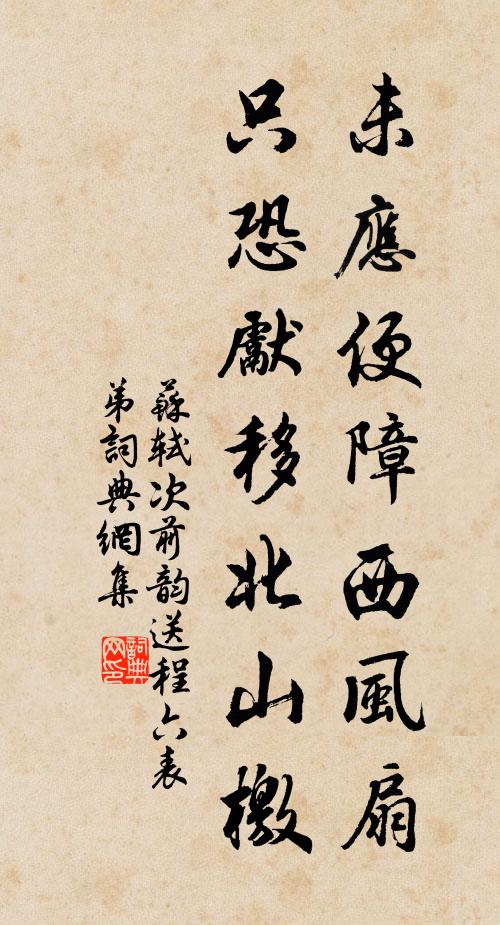 未應便障西風扇
只恐獻移北山檄
蘇軾次前韵送程六表
弟詞典網集
詞典
网印